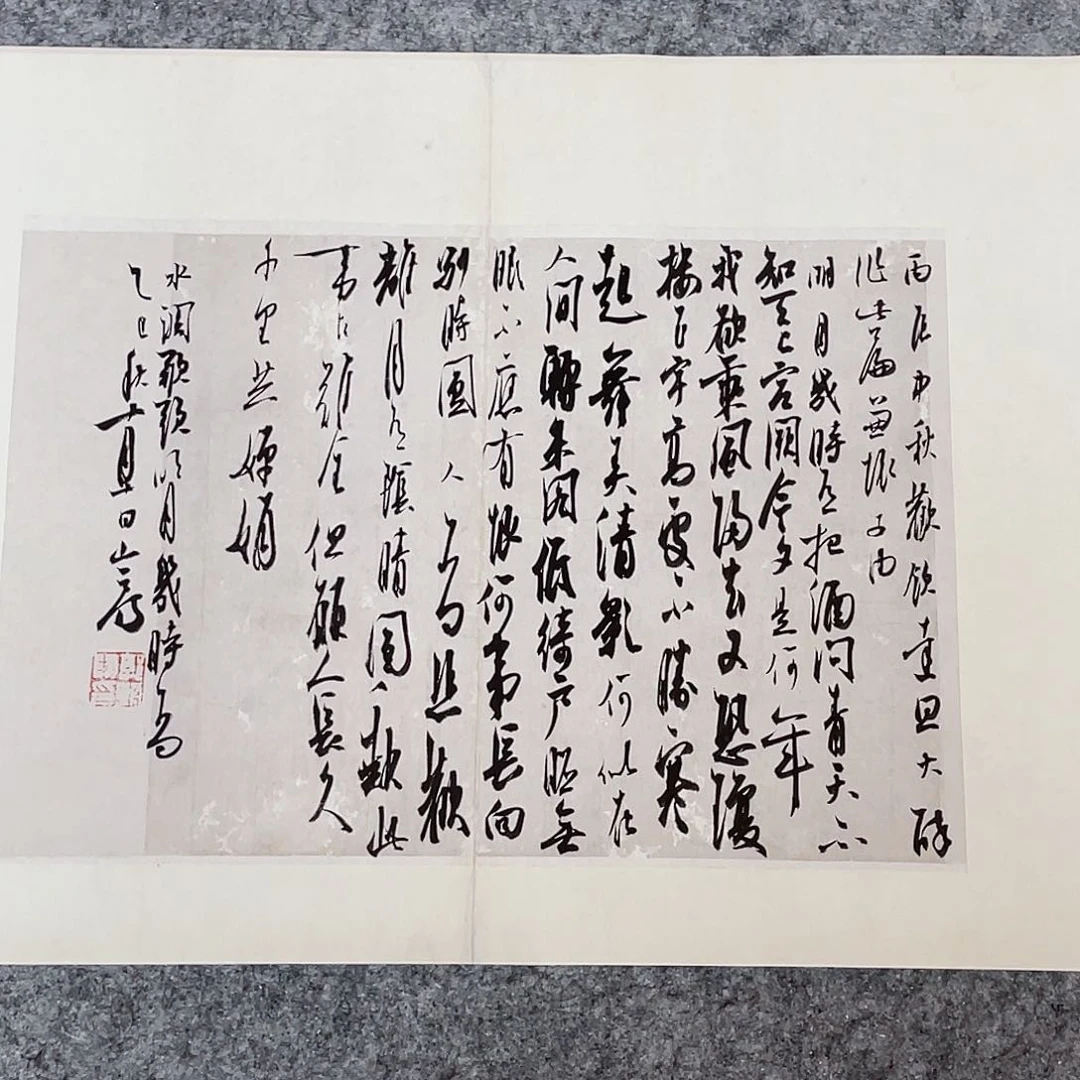 丙辰中秋歡飲達旦大醉
作此篇兼懷子由
明月幾時有把酒問青天不
知天上宮闕今夕是何年
我欲乘風歸去又恐瓊
樓玉宇高處不勝寒
起舞弄清影何似在
人間轉朱閣低綺戶照無
眠不應有恨何事長向
別時圓人有悲歡
離月有陰晴圓缺此
事古難全但願人長久
千里共嬋娟
水調歌頭明月幾時有
乙巳秋